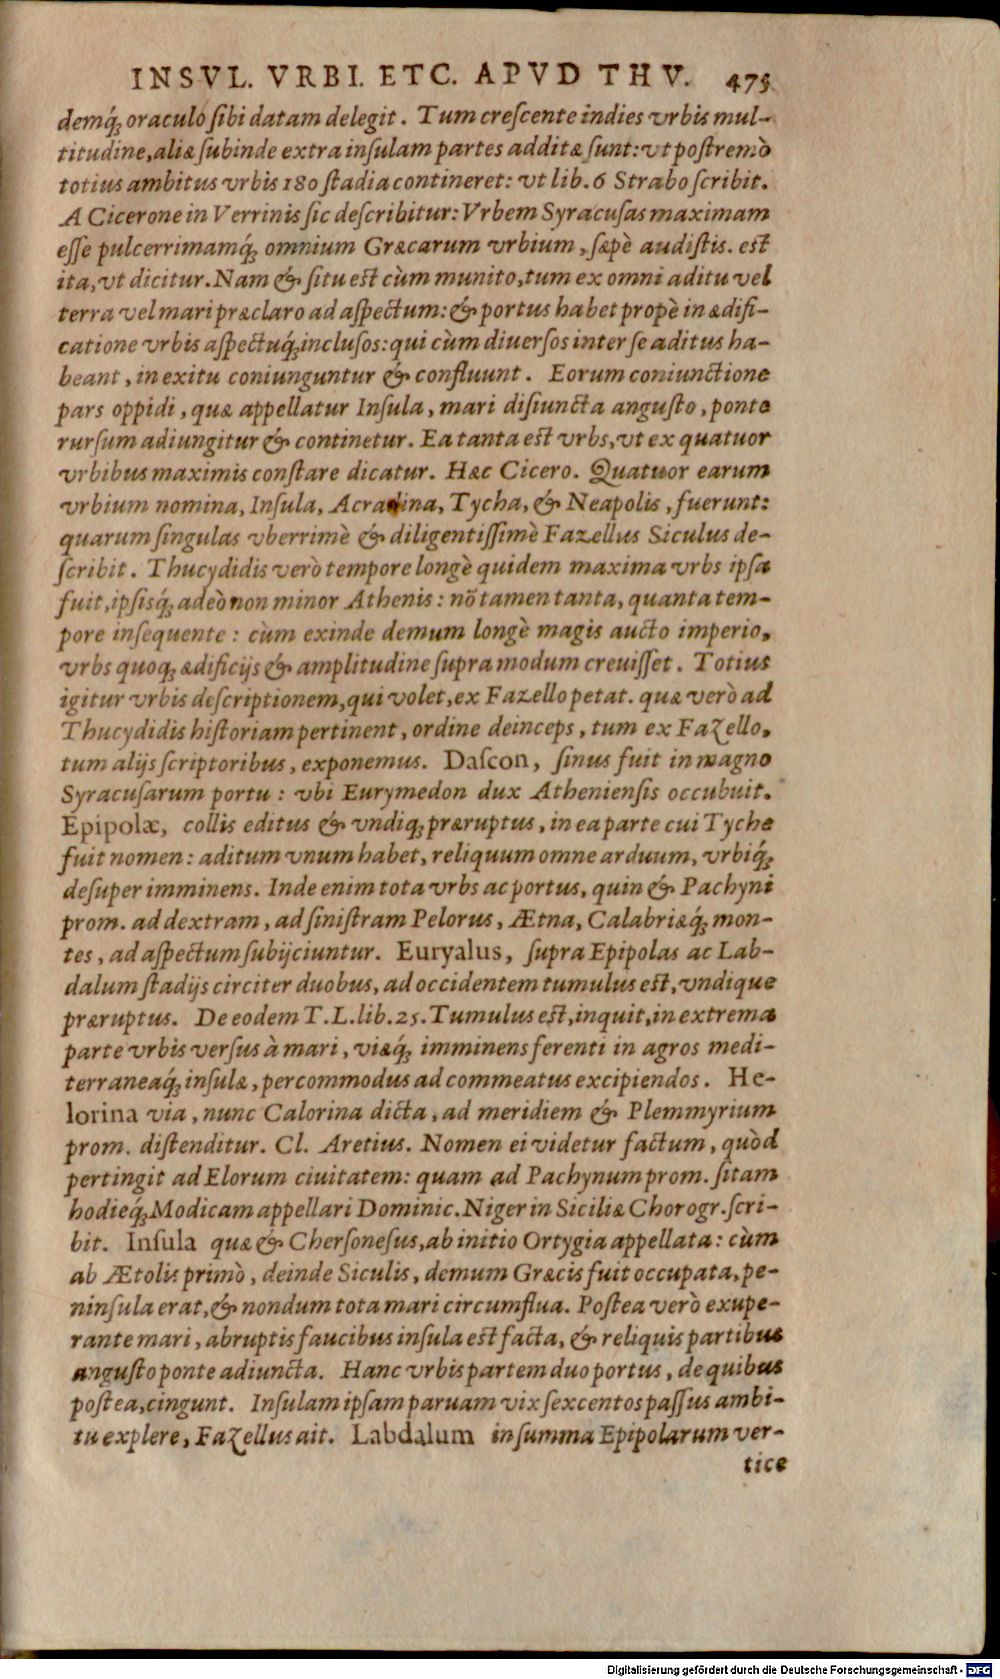 INSVL. VRBI. ETC. APVD THV. 475
demq́ꝫ oraculo ſibi datam delegit. Tum creſcente indies vrbis mul-
titudine, aliæ ſubinde extra inſulam partes additæ ſunt: vt poſtremò
totius ambitus vrbis 180 ſtadia contineret: vt lib. 6 Strabo ſcribit.
A Cicerone in Verrinis ſic deſcribitur: Vrbem Syracuſas maximam
eſſe pulcerrimamq́ꝫ omnium Græcarum vrbium, ſæpè audiſtis. eſt
ita, vt dicitur. Nam & ſitu eſt cùm munito, tum ex omni aditu vel
terra vel mari præclaro ad aſpectum: & portus habet propè in ædifi-
catione vrbis aſpectuq́ꝫ incluſos: qui cùm diuerſos inter ſe aditus ha-
beant, in exitu coniunguntur & confluunt. Eorum coniunctione
pars oppidi, quæ appellatur Inſula, mari diſiuncta anguſto, ponte
rurſum adiungitur & continetur. Ea tanta eſt vrbs, vt ex quatuor
vrbibus maximis conſtare dicatur. Hæc Cicero. Quatuor earum
vrbium nomina, Inſula, Acradina, Tycha, & Neapolis, fuerunt:
quarum ſingulas vberrimè & diligentiſſimè Fazellus Siculus de-
ſcribit. Thucydidis verò tempore longè quidem maxima vrbs ipſa
fuit, ipſisq́ꝫ adeò non minor Athenis: nõ tamen tanta, quanta tem-
pore inſequente: cùm exinde demum longè magis aucto imperio,
vrbs quoqꝫ ædificijs & amplitudine ſupra modum creuiſſet. Totius
igitur vrbis deſcriptionem, qui volet, ex Fazello petat. quæ verò ad
Thucydidis hiſtoriam pertinent, ordine deinceps, tum ex Fazello,
tum alijs ſcriptoribus, exponemus. Daſcon, ſinus fuit in magno
Syracuſarum portu: vbi Eurymedon dux Athenienſis occubuit.
Epipolæ, collis editus & vndiqꝫ præruptus, in ea parte cui Tyche
fuit nomen: aditum vnum habet, reliquum omne arduum, vrbiq́ꝫ
deſuper imminens. Inde enim tota vrbs ac portus, quin & Pachyni
prom. ad dextram, ad ſiniſtram Pelorus, Ætna, Calabriæq́ꝫ mon-
tes, ad aſpectum ſubijciuntur. Euryalus, ſupra Epipolas ac Lab-
dalum ſtadijs circiter duobus, ad occidentem tumulus eſt, vndique
præruptus. De eodem T. L. lib. 25. Tumulus eſt, inquit, in extrema
parte vrbis verſus à mari, viæq́ꝫ imminens ferenti in agros medi-
terraneaq́ꝫ inſulæ, percommodus ad commeatus excipiendos. He-
lorina via, nunc Calorina dicta, ad meridiem & Plemmyrium
prom. diſtenditur. Cl. Aretius. Nomen ei videtur factum, quòd
pertingit ad Elorum ciuitatem: quam ad Pachynum prom. ſitam
hodieq́ꝫ Modicam appellari Dominic. Niger in Siciliæ Chorogr. ſcri-
bit. Inſula quæ & Cherſoneſus, ab initio Ortygia appellata: cùm
ab Ætolis primò, deinde Siculis, demum Græcis fuit occupata, pe-
ninſula erat, & nondum tota mari circumflua. Poſtea verò exupe-
rante mari, abruptis faucibus inſula eſt facta, & reliquis partibus
anguſto ponte adiuncta. Hanc vrbis partem duo portus, de quibus
poſtea, cingunt. Inſulam ipſam paruam vix ſexcentos paſſus ambi-
tu explere, Fazellus ait. Labdalum in ſumma Epipolarum ver-
tice
Digitalisierung gefördert durch die Deutsche Forschungsgemeinschaft - DFG